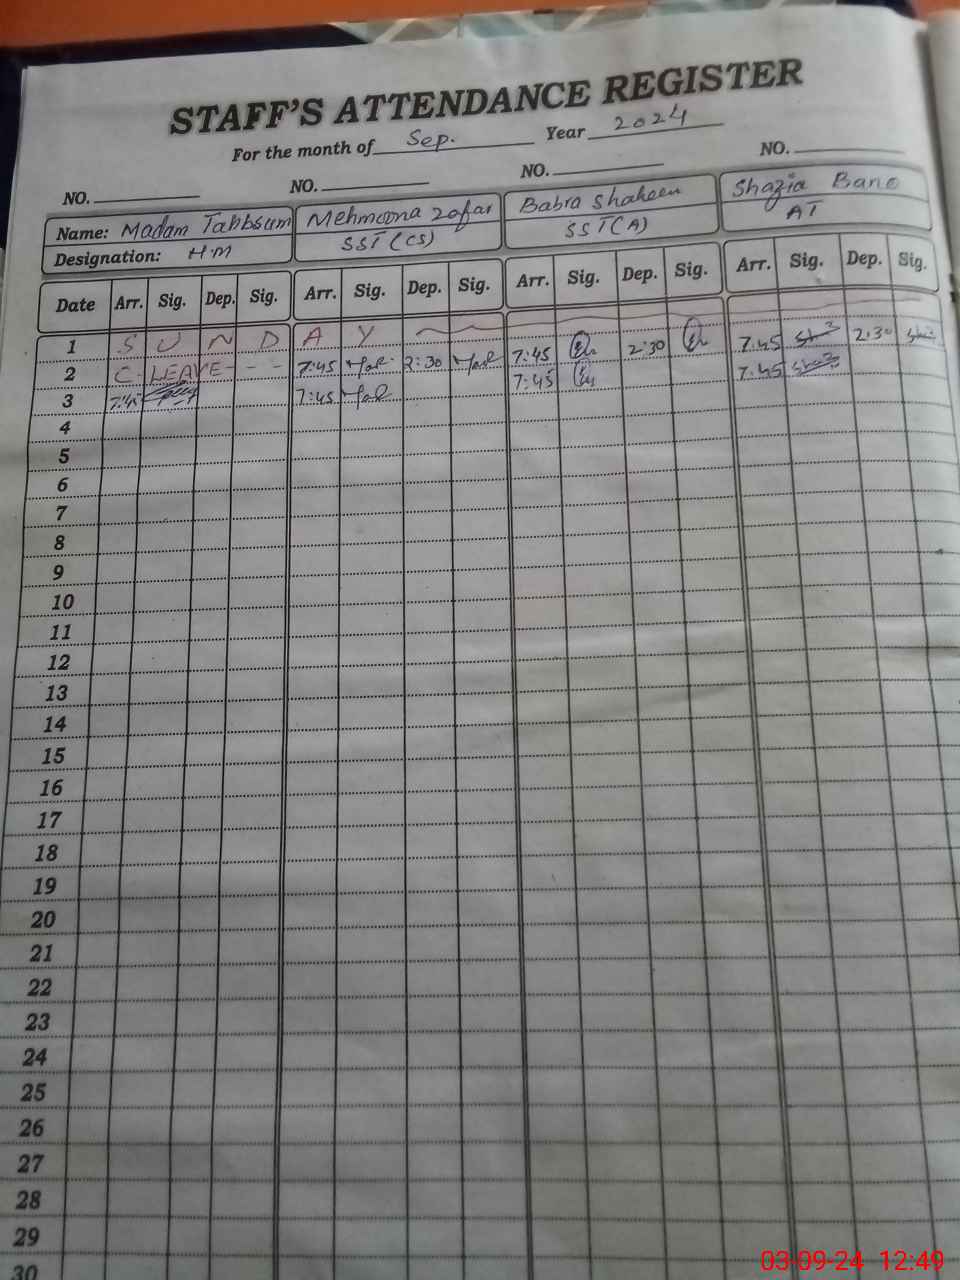 STAFF'S ATTENDANCE REGISTER
For the month of Sep. Year 2024
NO. NO. NO. NO.
Name: Madam Tabbsum Mehmoona Zafar Babra Shaheen Shazia Bano
Designation: HM SST (CS) SST (A) AT
Date Arr. Sig. Dep. Sig. Arr. Sig. Dep. Sig. Arr. Sig. Dep. Sig. Arr. Sig. Dep. Sig.
1 S U N D A Y
2 C-LEAVE--- 7:45 2:30 7:45 2:30 7:45 2:30
3 7:45 7:45 7:45 7:45
4
5
6
7
8
9
10
11
12
13
14
15
16
17
18
19
20
21
22
23
24
25
26
27
28
29
30
03-09-24 12:49